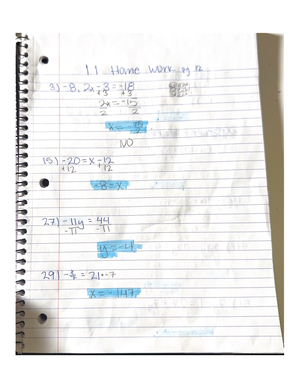 1.1 Home work pg 12
3) -8, 2x - 3 = -18
+3 +3
2x = -15
2 2
x = -15/2
NO
15) -20 = x - 12
+12 +12
-8 = x
27) -11y = 44
-11 -11
y = -4
x = -147